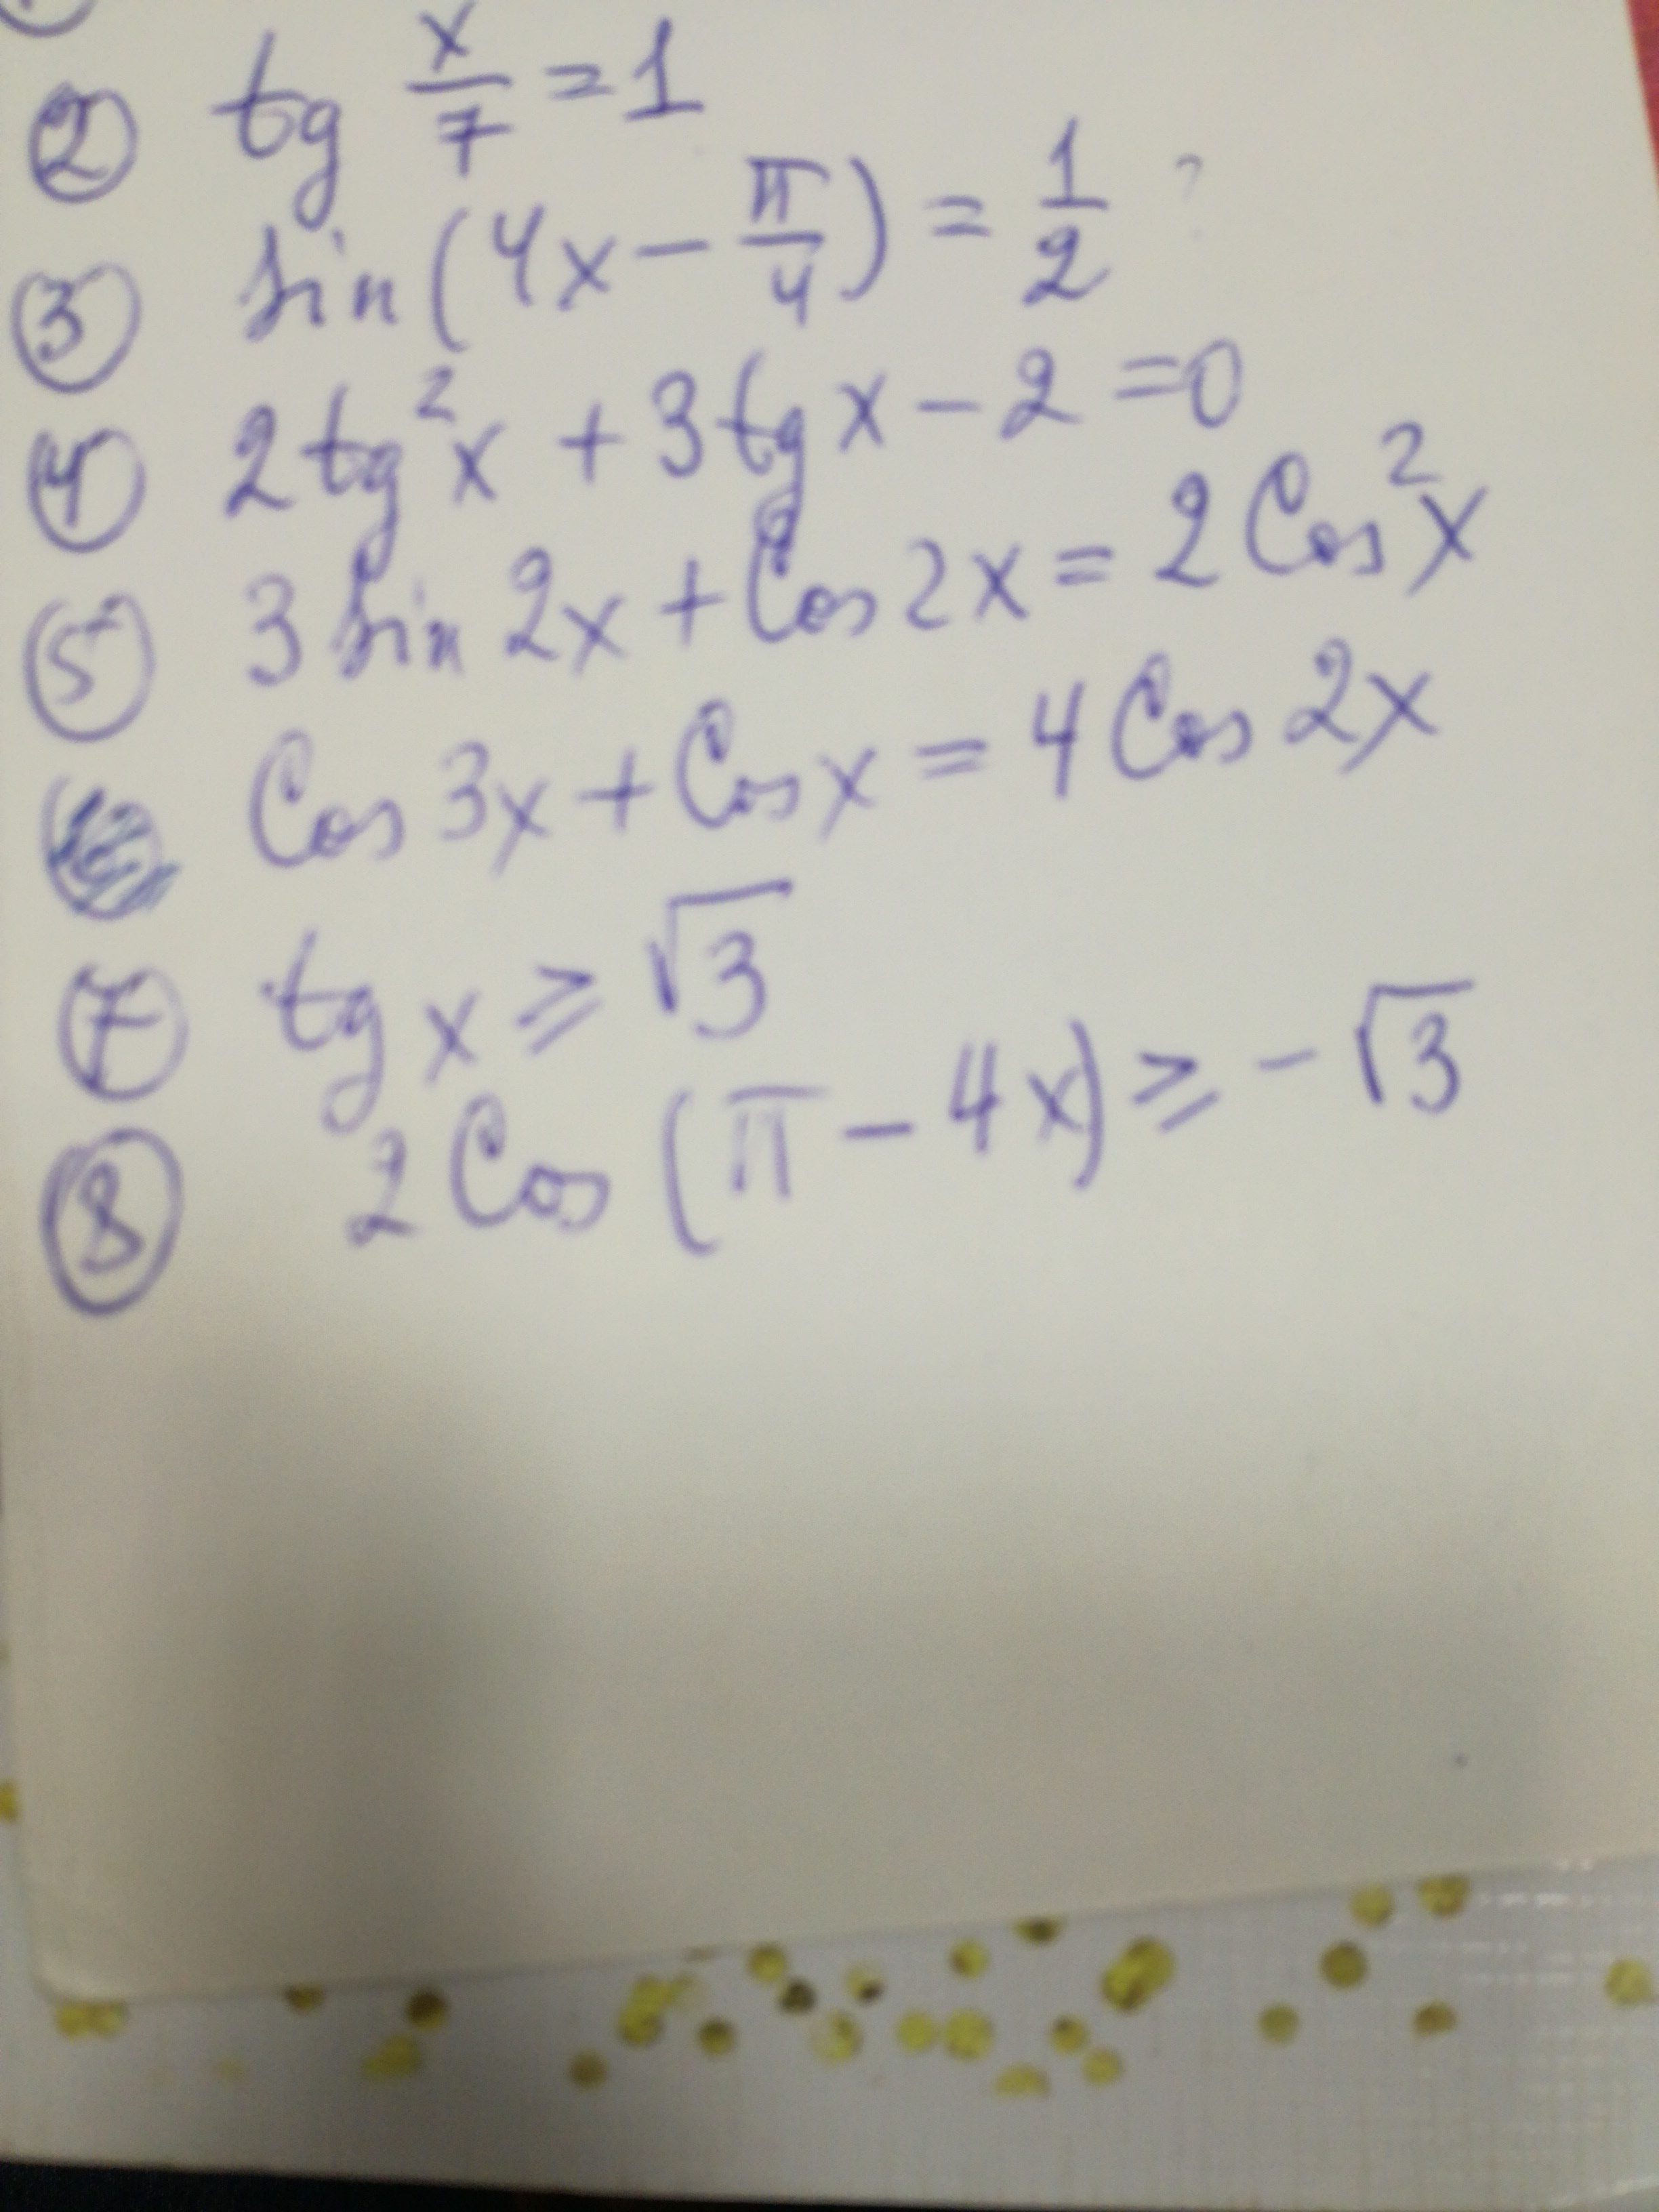 ② tg x/7 = 1
③ sin(4x - π/4) = 1/2 ?
④ 2tg²x + 3tgx - 2 = 0
⑤ 3 sin 2x + Cos 2x = 2Cos²x
Cos 3x + Cos x = 4 Cos 2x
⑦ tg x ≥ √3
⑧ 2Cos (π - 4x) ≥ -√3